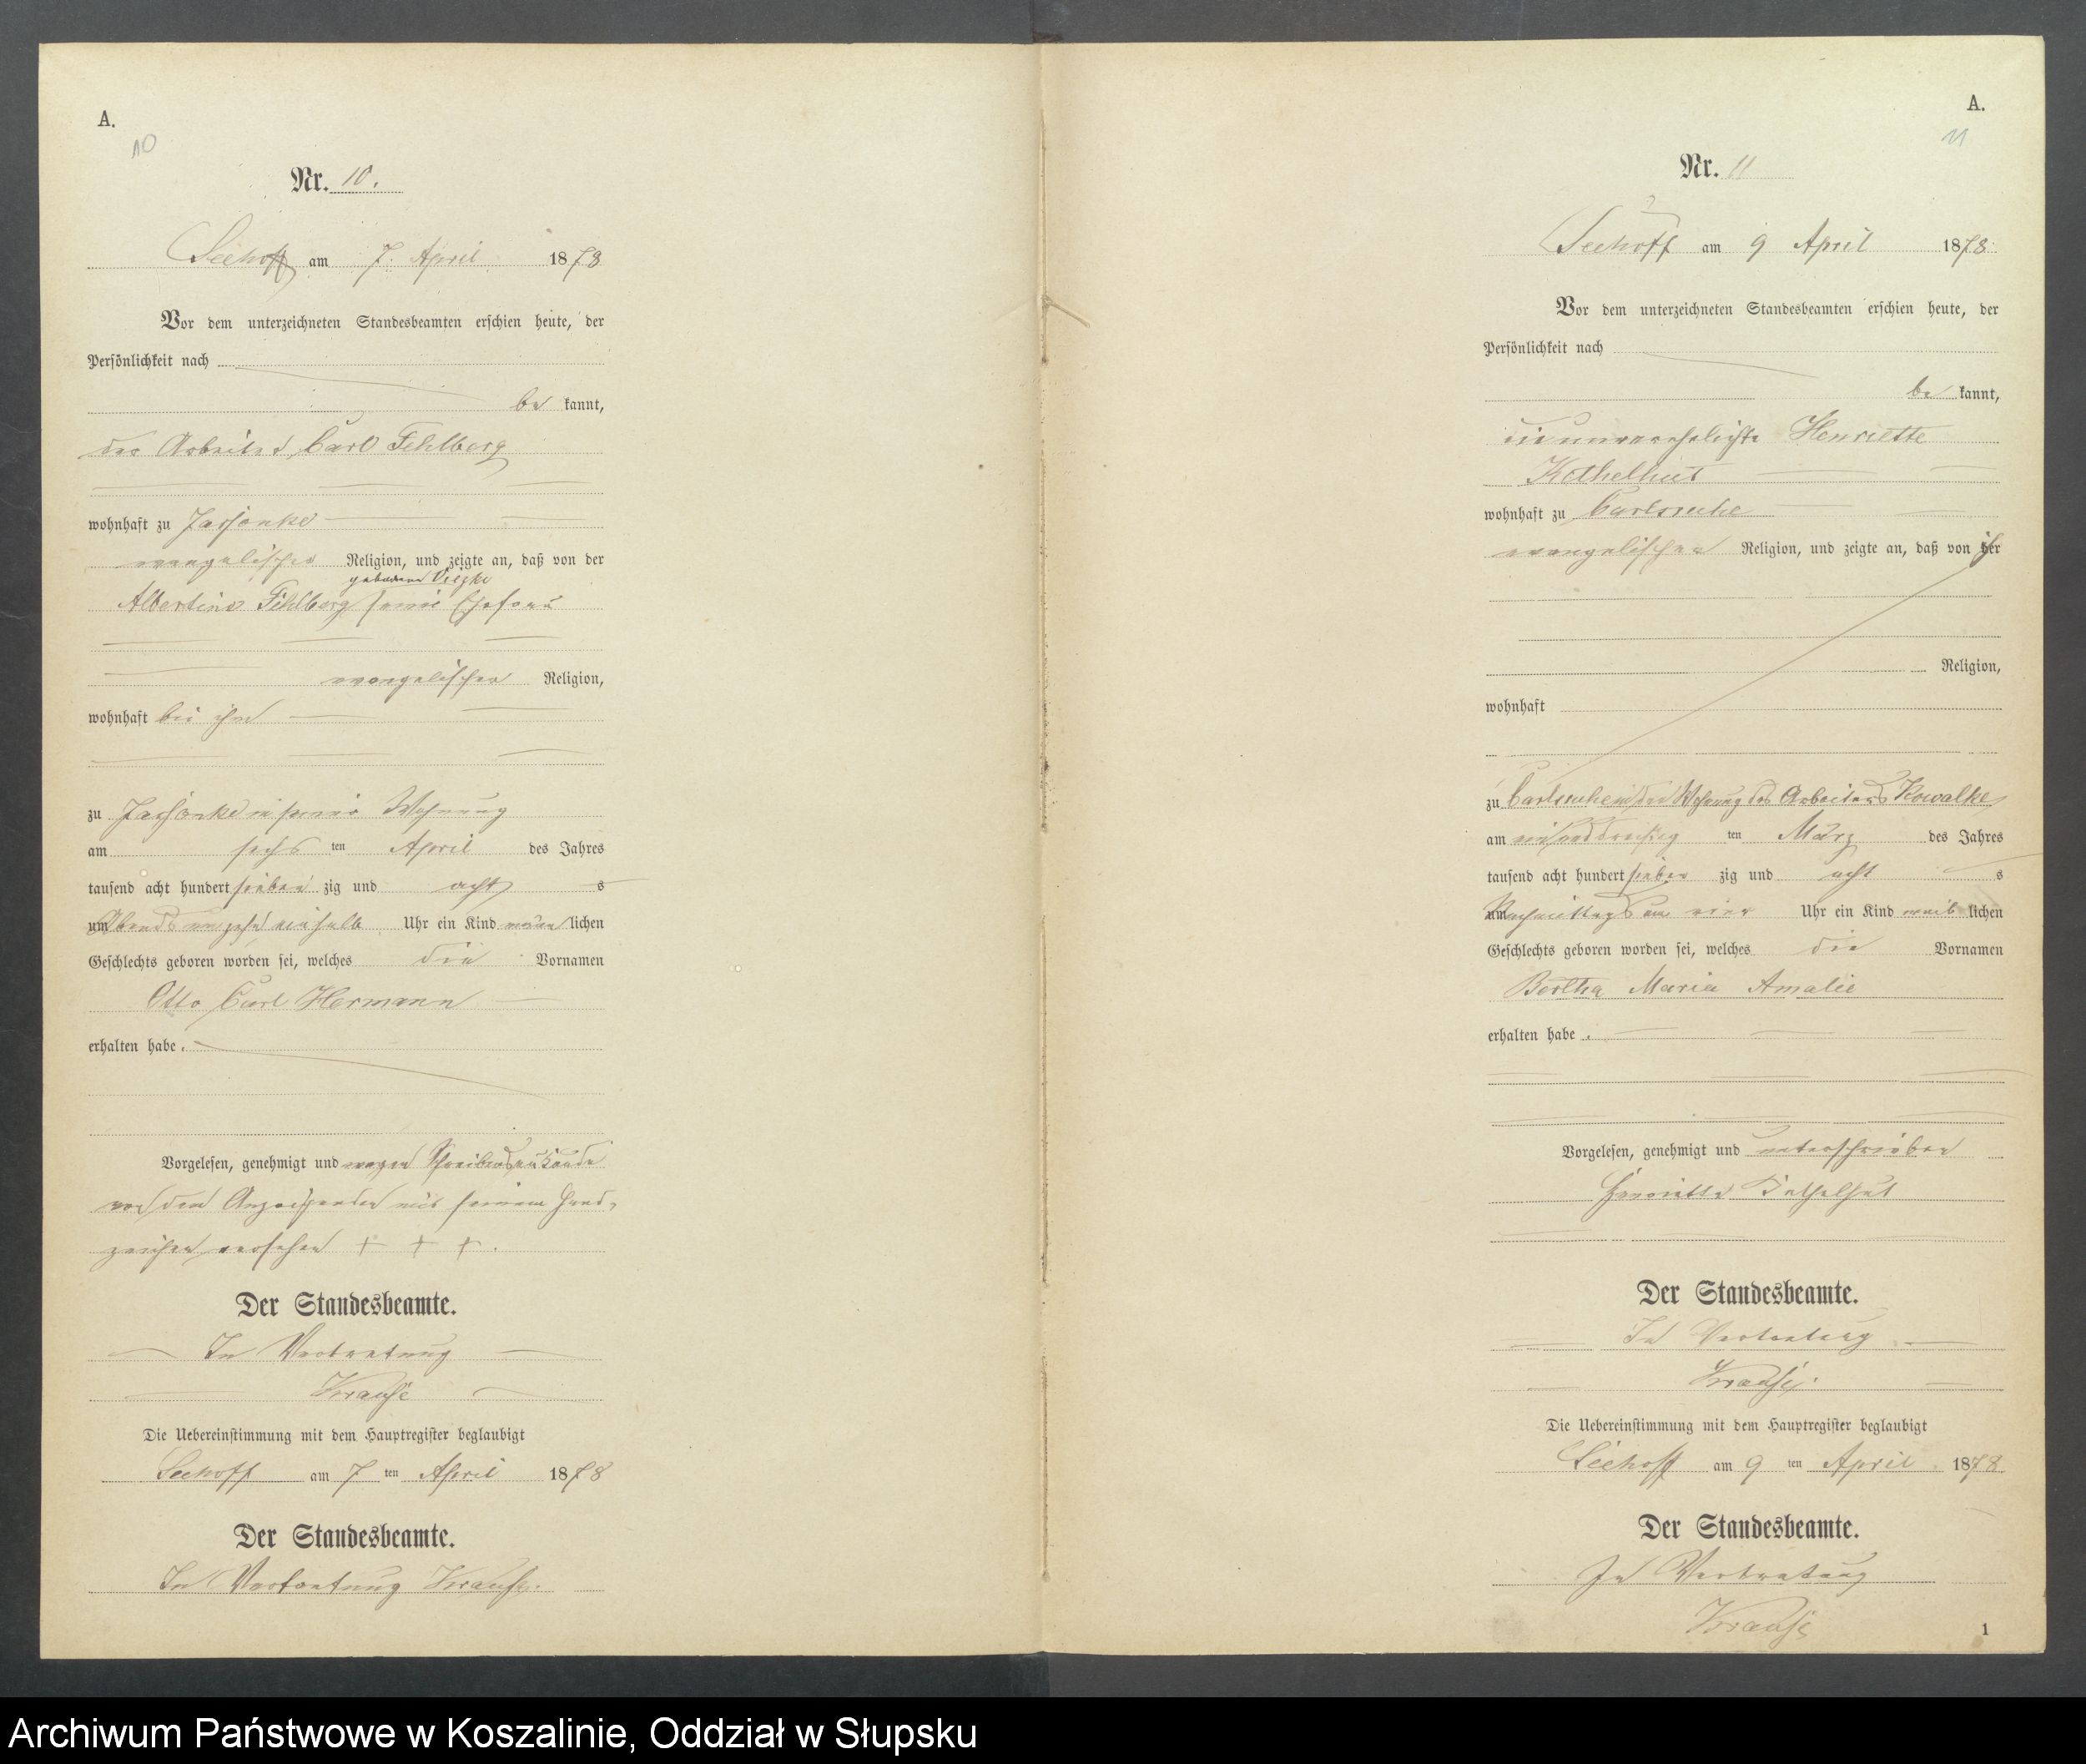 A.
10
Nr. 10.
Seehoff am 7. April 1878
Vor dem unterzeichneten Standesbeamten erschien heute, der
Persönlichkeit nach
be kannt,
der Arbeiter Carl Fehlberg
wohnhaft zu Jassonke
evangelischer Religion, und zeigte an, daß von der
geborene
Albertine Fehlberg seine Ehefrau
evangelischer Religion,
wohnhaft bei ihm
zu Jassonke in seiner Wohnung
am sechs ten April des Jahres
tausend acht hundert sieben zig und acht s
um Abends um zehn einhalb Uhr ein Kind männ lichen
Geschlechts geboren worden sei, welches die Vornamen
Otto Carl Hermann
erhalten habe.
Vorgelesen, genehmigt und wegen Schreibensunkunde
von dem Anzeigenden mit seinem Hand-
zeichen versehen + + +.
Der Standesbeamte.
In Vertretung
Krause
Die Uebereinstimmung mit dem Hauptregister beglaubigt
Seehoff am 7 ten April 1878
Der Standesbeamte.
In Vertretung Krause.
A.
11
Nr. 11
Seehoff am 9 April 1878
Vor dem unterzeichneten Standesbeamten erschien heute, der
Persönlichkeit nach
be kannt,
die unverehelichte Henriette
Kethelhut
wohnhaft zu Carlsruhe
evangelischer Religion, und zeigte an, daß von ihr
Religion,
wohnhaft
zu Carlsruhe in der Wohnung des Arbeiters Kowalke
am einunddreißig ten März des Jahres
tausend acht hundert sieben zig und acht s
um Nachmittags um vier Uhr ein Kind weib lichen
Geschlechts geboren worden sei, welches die Vornamen
Bertha Maria Amalie
erhalten habe.
Vorgelesen, genehmigt und unterschrieben
Henriette Kethelhut
Der Standesbeamte.
In Vertretung
Krause.
Die Uebereinstimmung mit dem Hauptregister beglaubigt
Seehoff am 9 ten April 1878
Der Standesbeamte.
In Vertretung
Krause
1
Archiwum Państwowe w Koszalinie, Oddział w Słupsku